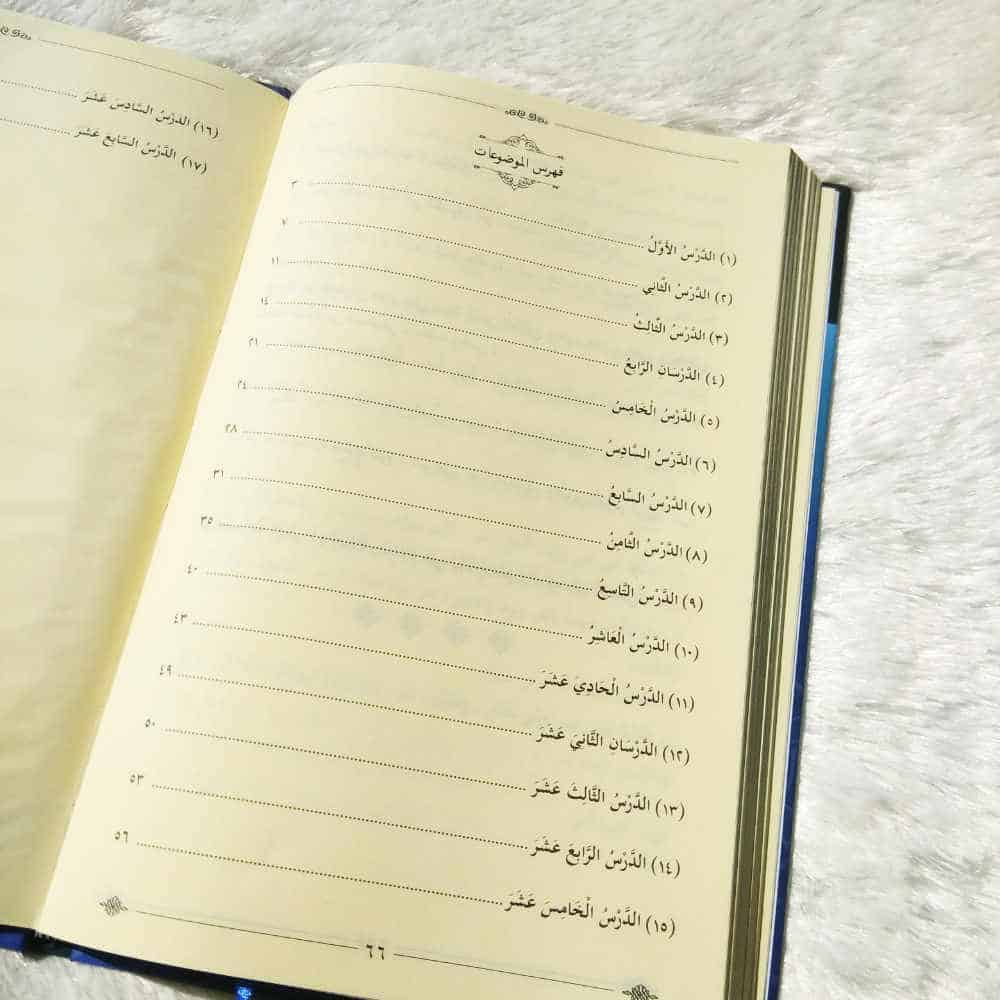 فهرس الموضوعات
(١) الدَّرْسُ الأَوَّلُ ........ ٣
(٢) الدَّرْسُ الثَّانِي ........ ٧
(٣) الدَّرْسُ الثَّالِثُ ........ ١١
(٤) الدَّرْسَانِ الرَّابِعُ ........ ١٤
(٥) الدَّرْسُ الْخَامِسُ ........ ٢١
(٦) الدَّرْسُ السَّادِسُ ........ ٢٤
(٧) الدَّرْسُ السَّابِعُ ........ ٢٨
(٨) الدَّرْسُ الثَّامِنُ ........ ٣١
(٩) الدَّرْسُ التَّاسِعُ ........ ٣٥
(١٠) الدَّرْسُ الْعَاشِرُ ........ ٤٠
(١١) الدَّرْسُ الْحَادِيَ عَشَرَ ........ ٤٣
(١٢) الدَّرْسَانِ الثَّانِيَ عَشَرَ ........ ٤٩
(١٣) الدَّرْسُ الثَّالِثَ عَشَرَ ........ ٥٠
(١٤) الدَّرْسُ الرَّابِعَ عَشَرَ ........ ٥٣
(١٥) الدَّرْسُ الْخَامِسَ عَشَرَ ........ ٥٦
٦٦
(١٦) الدَّرْسُ السَّادِسَ عَشَرَ ........
(١٧) الدَّرْسُ السَّابِعَ عَشَرَ ........